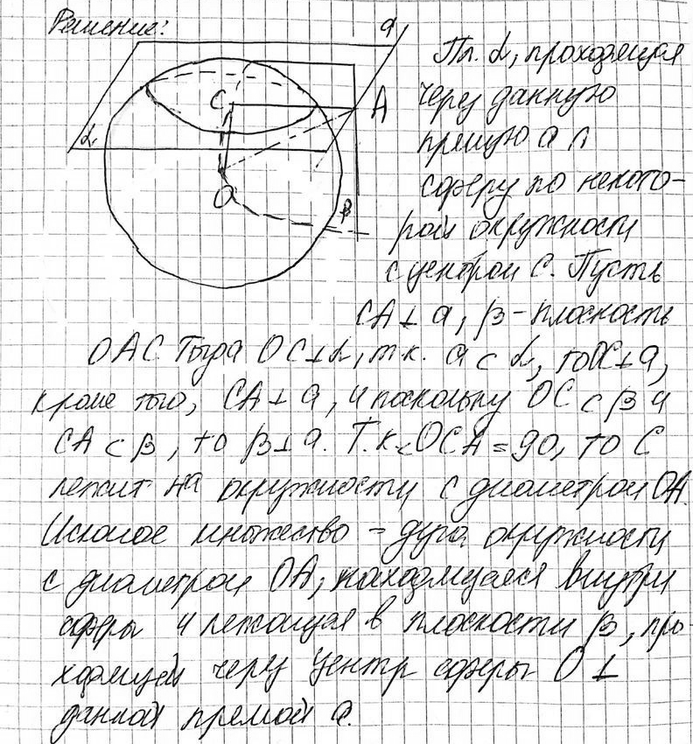 Решение:
a
C
A
α
O
β
Пл. α, проходящая
через данную
прямую a ∩
сферу по некото-
рой окружности
с центром C. Пусть
CA⊥a, β - плоскость
OAC. Тогда OC⊥α, т.к. a⊂α, то OC⊥a,
кроме того, CA⊥a, и поскольку OC⊂β и
CA⊂β, то β⊥a. Т.к ∠OCA=90, то C
лежит на окружности с диаметром OA.
Искомое множество - дуга окружности
с диаметром OA, находящаяся внутри
сферы и лежащая в плоскости β, про-
ходящей через центр сферы O⊥
данной прямой a.